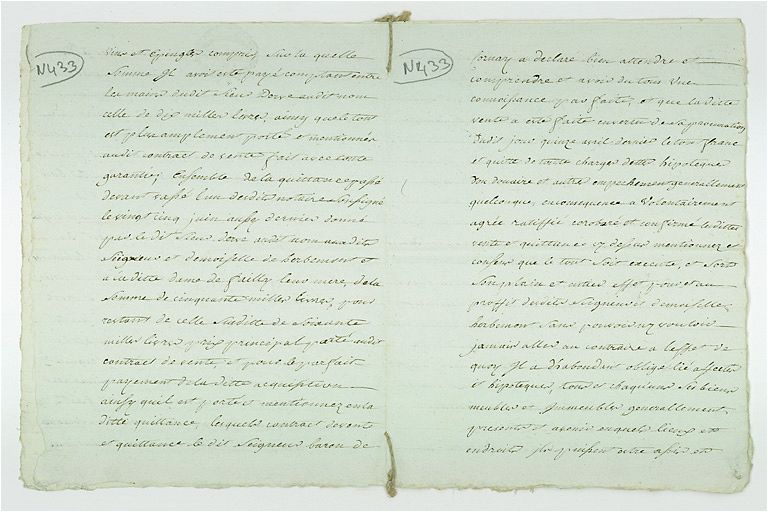 N433
vins et Epingles compris sur la quelle
Somme Il avoit esté payé comptant entre
les mains dudit Sieur Dorve audit nom
celle de dix milles livres, ainsy que le tout
est plus amplement porté et mentionnés
audit contract de vente fait avec toute
garanties, Ensemble de la quittance
devant l'un desdits notaires
le vingt cinq juin aussy dernier donné
par le dit Sieur Dorve audit nom auxdits
Seigneur et demoiselle de herbemont et
a laditte dame de failly leur mere, dela
Somme de cinquante milles livres, pour
restant de celle Susditte de Soixante
milles livres prix principal porté audit
contract de vente, et pour le parfait
payement dela ditte acquisition
ainsy quil est porté et mentionnez enla
ditte quittance, lesquels contract de vente
et quittance le dit Seigneur baron de
N433
fornay a déclaré bien attendre et
comprendre et avoir du tous une
connoissance parfaite, et que la ditte
vente a esté faite envertu de sa procuration
dudit jour quinze avril dernier le tout franc
et quitte de toute charges dette hipoteque
don douaire et autre empechement generallement
quelconque, en consequence a volontairement
agréé ratiffié coroboré et confirmé lesdittes
vente et quittances cy dessus mentionnez et
consenti que le tout soit executé, et Sorte
Son plain et entier effet pour et au
proffit desdits Seigneur et demoiselle
herbemont Sans pouvoir ny vouloir
jamais aller au contraire a leffet de
quoy Il a d'abondant obligé lié affecté
et hipotequé, tous et chaquuns Ses biens
meubles et Immeubles generallement
presents et avenir en quels lieux et
endroits ils puissent estre assis et